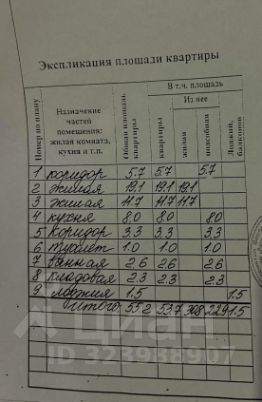 Экспликация площади квартиры
Номер по плану
Назначение частей помещения: жилая комната, кухня и т.п.
Общая площадь квартиры
В т.ч. площадь
Из нее
квартиры
жилая
подсобная
Лоджий, балконов
1 коридор 5.7 5.7 5.7
2 жилая 19.1 19.1 19.1
3 жилая 11.7 11.7 11.7
4 кухня 8.0 8.0 8.0
5 коридор 3.3 3.3 3.3
6 туалет 1.0 1.0 1.0
7 ванная 2.6 2.6 2.6
8 кладовая 2.3 2.3 2.3
9 лоджия 1.5 1.5
Итого: 55.2 53.7 30.8 22.9 1.5
циан
ID 323938907